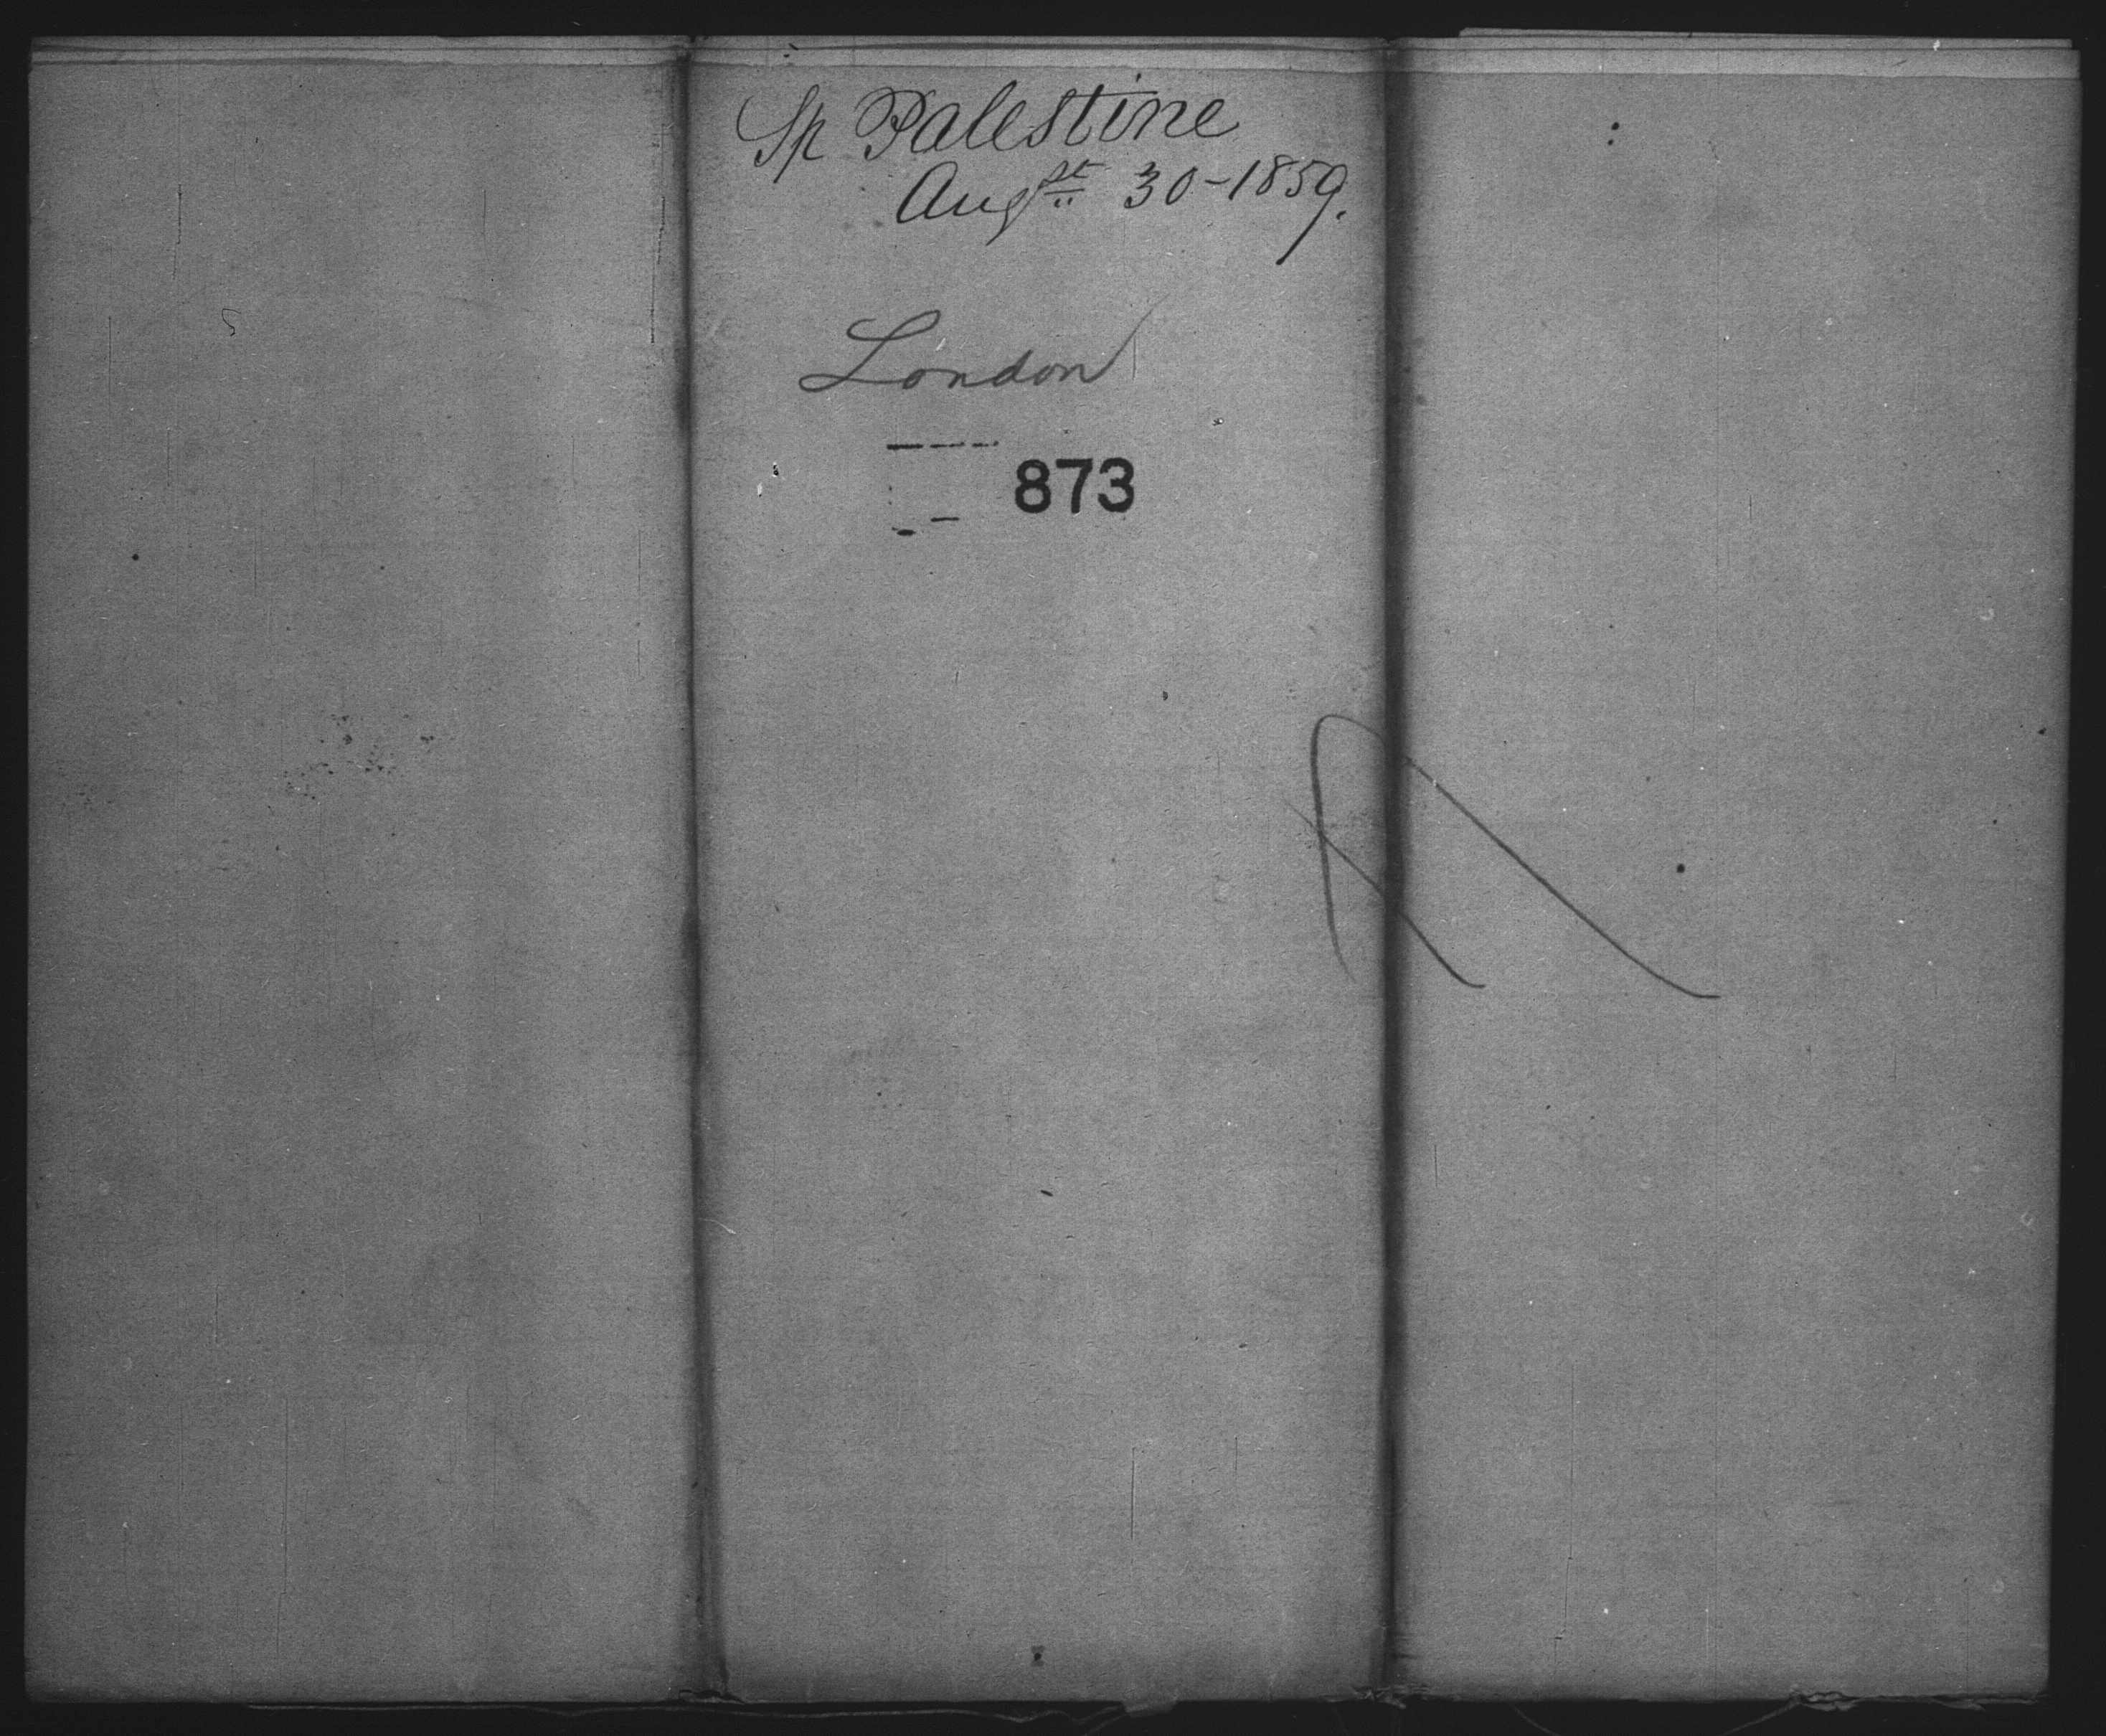 Sp Palestine
Augst 30-1859.
London
873